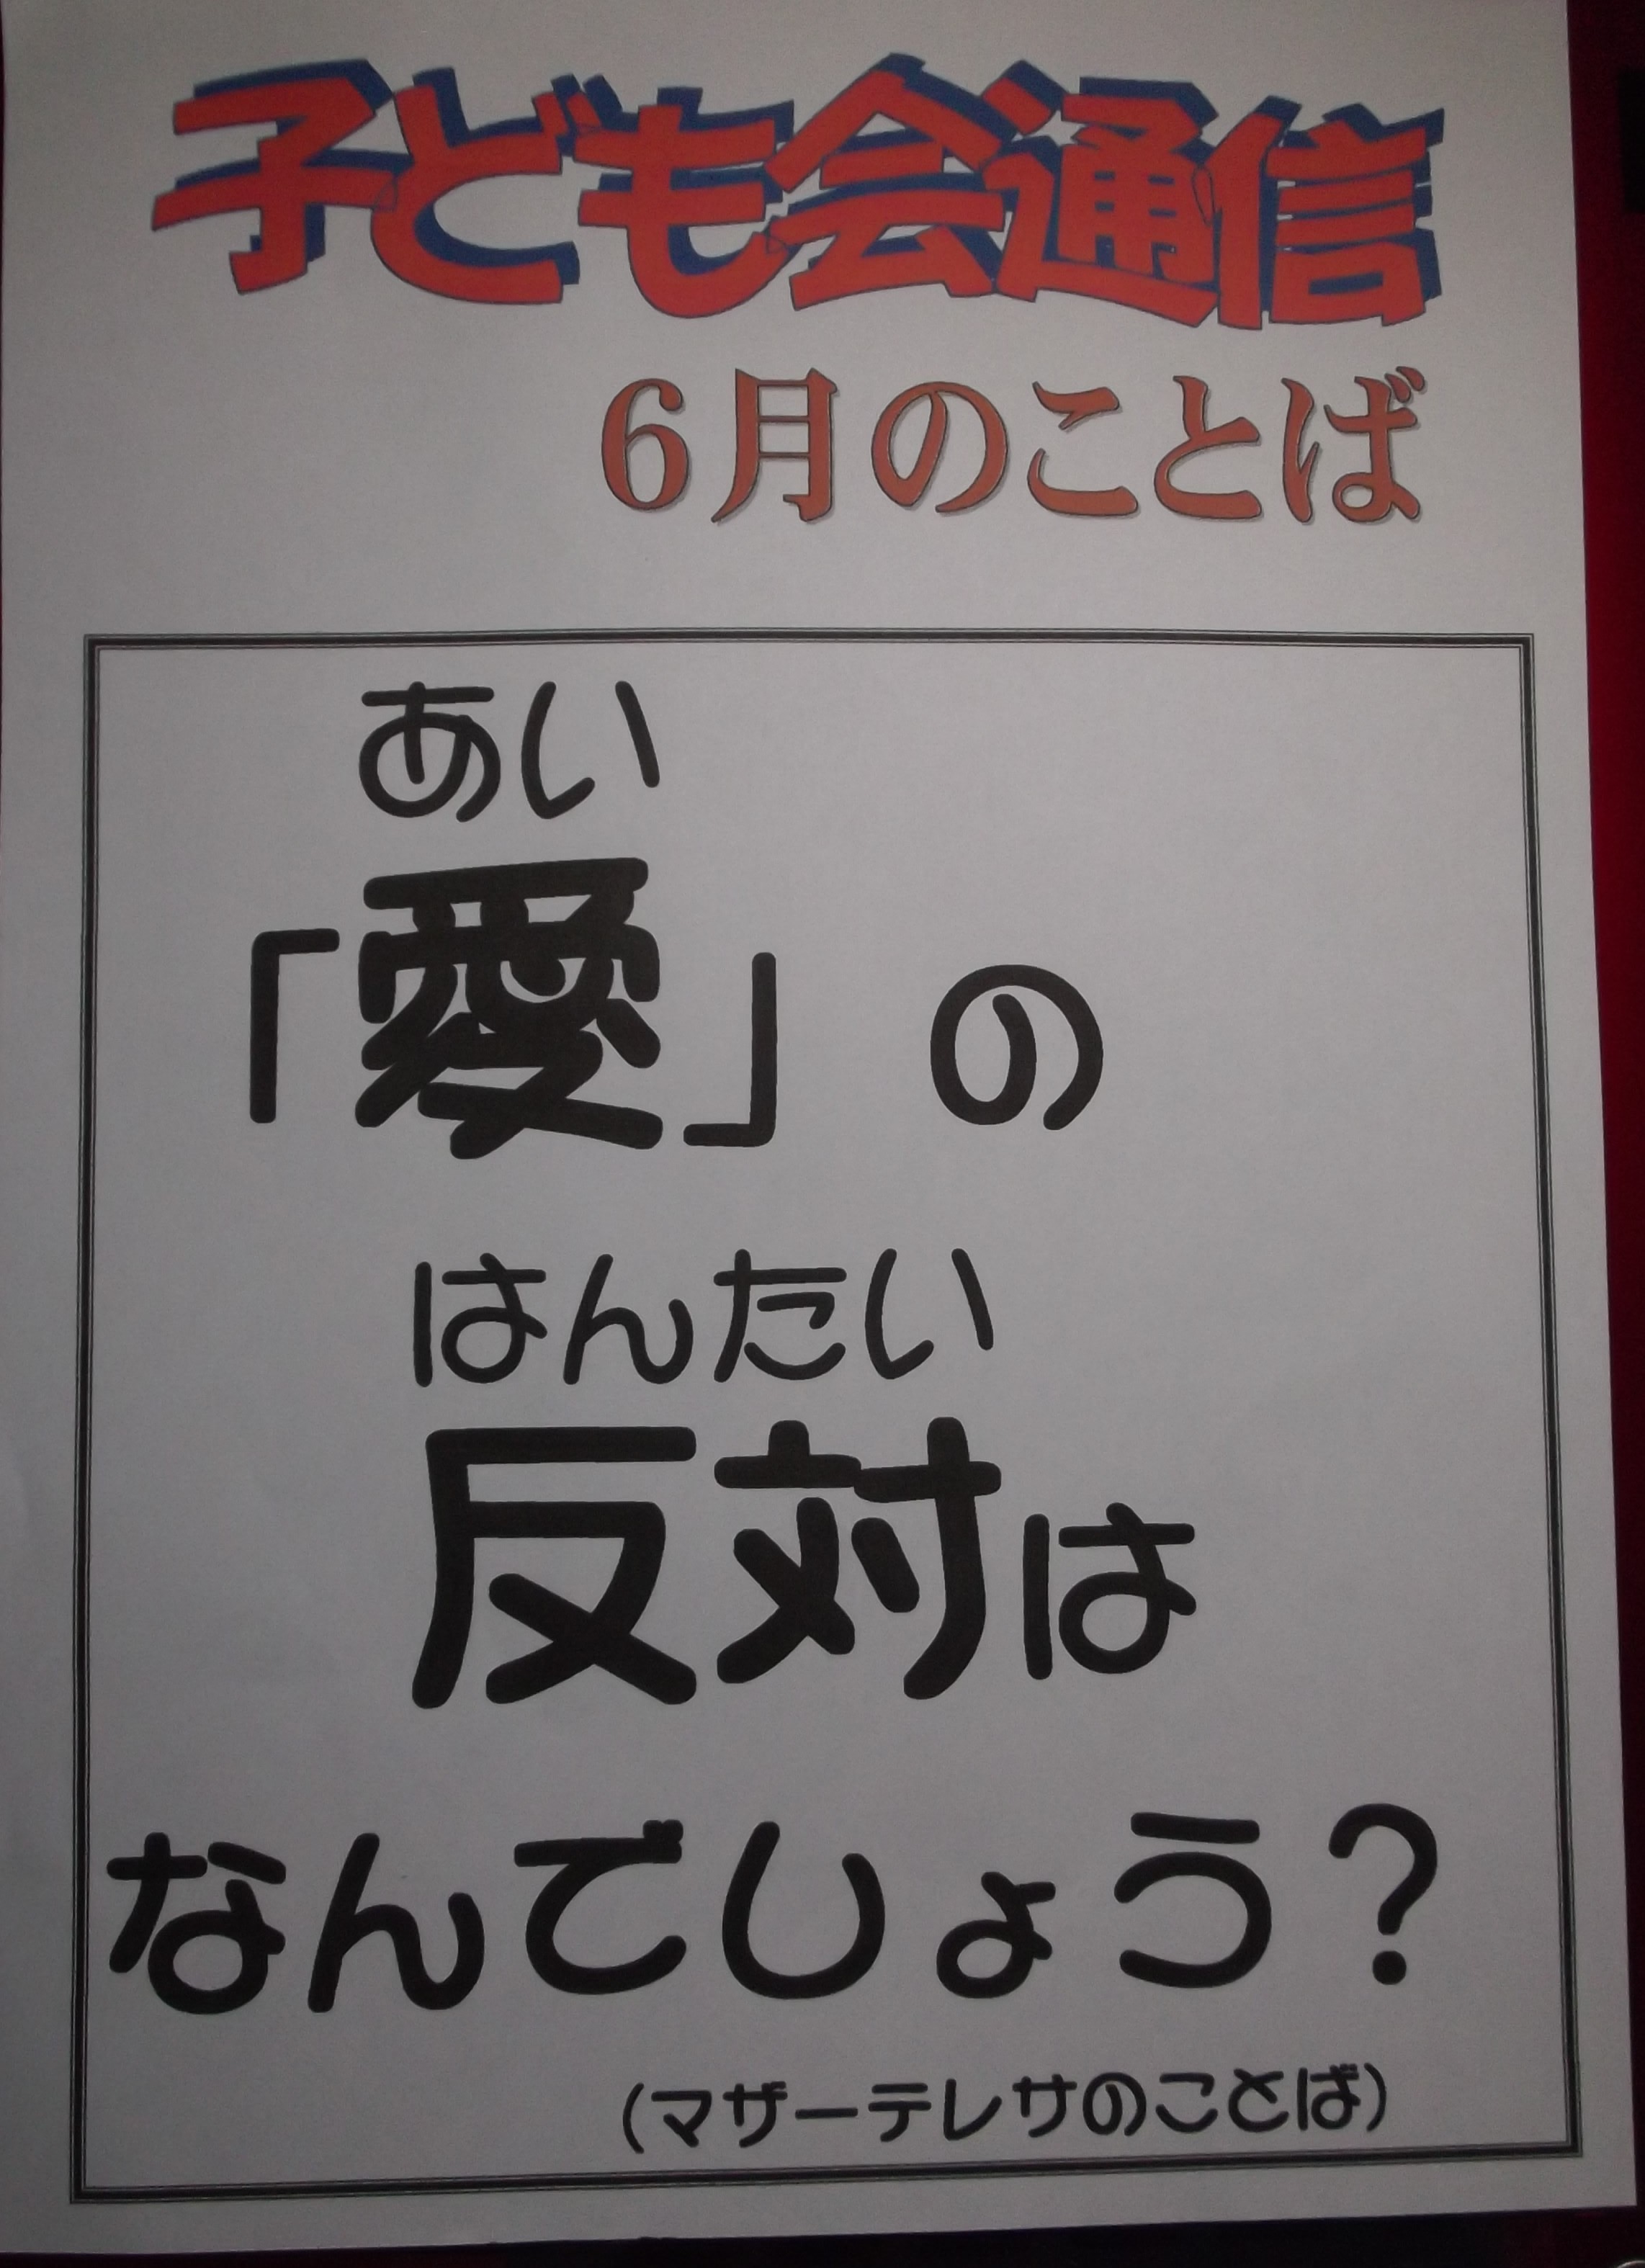 子ども会通信
6月のことば
あい
「愛」の
はんたい
反対は
なんでしょう?
(マザーテレサのことば)